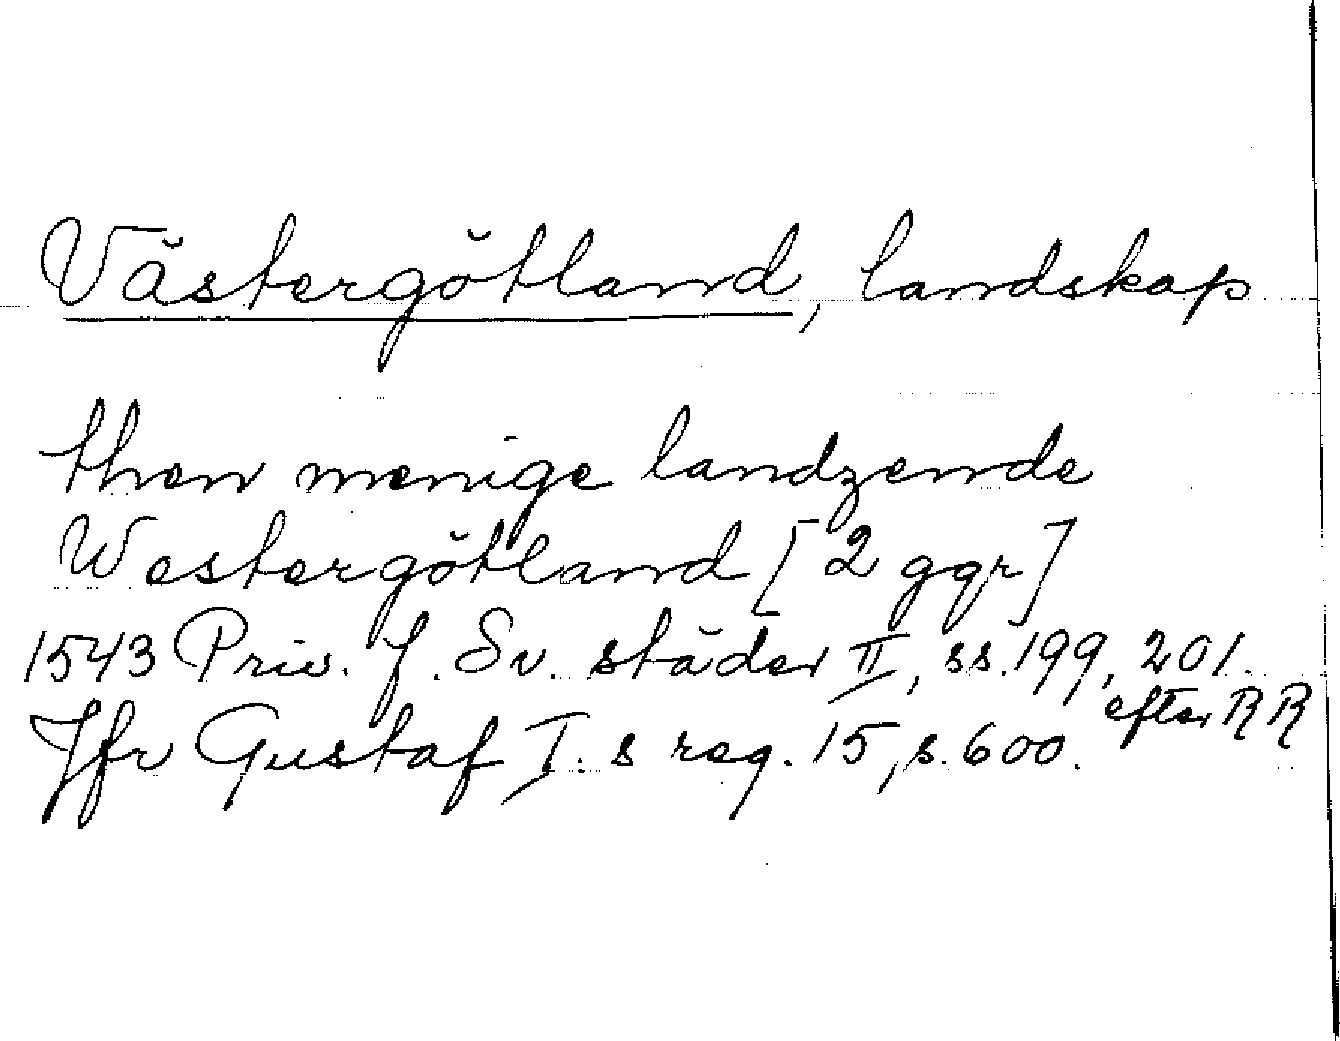 Västergötland, landskap
then menige landzende
Westergötland [2 ggr]
1543 Priv. f. Sv. städer II, ss. 199, 201.
efter RR
Jfr Gustaf I.s reg. 15, s. 600.